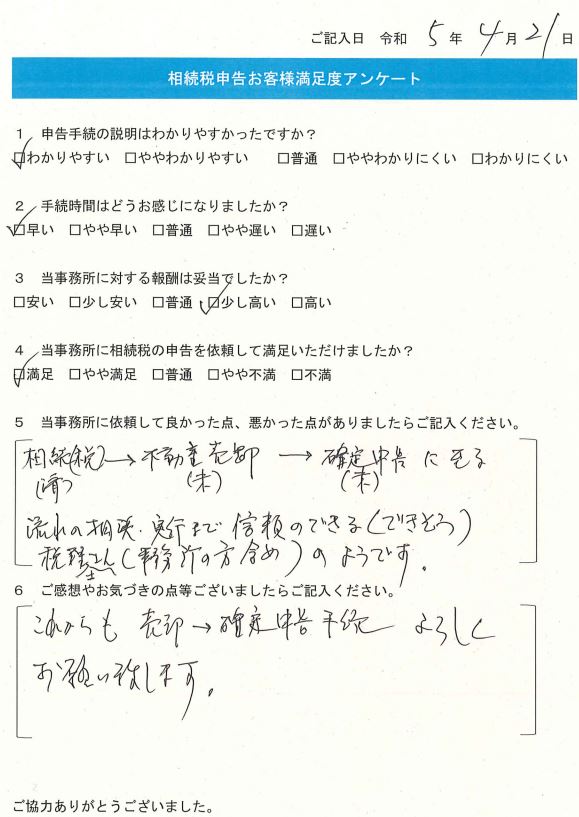 ご記入日 令和 5 年 4 月 21 日
相続税申告お客様満足度アンケート
1 申告手続の説明はわかりやすかったですか？
☑わかりやすい □ややわかりやすい □普通 □ややわかりにくい □わかりにくい
2 手続時間はどうお感じになりましたか？
☑早い □やや早い □普通 □やや遅い □遅い
3 当事務所に対する報酬は妥当でしたか？
□安い □少し安い □普通 ☑少し高い □高い
4 当事務所に相続税の申告を依頼して満足いただけましたか？
☑満足 □やや満足 □普通 □やや不満 □不満
5 当事務所に依頼して良かった点、悪かった点がありましたらご記入ください。
相続(税)→不動産売却 → 確定申告 に至る
(済) (未) (未)
流れの相談・実行まで 信頼のできる(できそう)
税理士さん(事務所の方含め)のようです。
6 ご感想やお気づきの点等ございましたらご記入ください。
これからも 売却→確定申告手続 よろしく
お願い致します。
ご協力ありがとうございました。